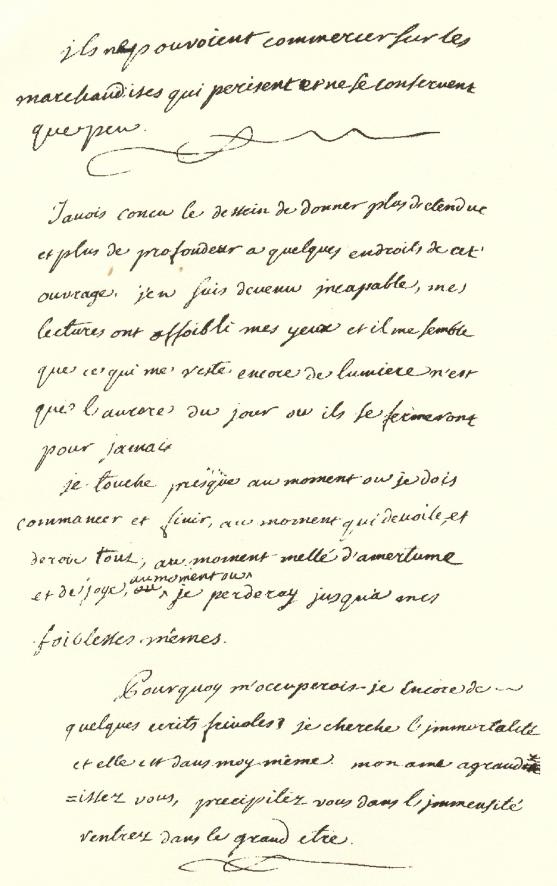 ils ne pouvoient commercer sur les
marchandises qui perisent et ne se conservent
que peu.
J'avois concu le dessein de donner plus detendue
et plus de profondeur a quelques endroits de cet
ouvrage. j'en suis devenu incapable, mes
lectures ont affoibli mes yeux et il me semble
que ce qui me reste encore de lumiere n'est
que l'aurore du jour ou ils se fermeront
pour jamais
je touche presque au moment ou je dois
commancer et finir, au moment qui devoile et
derobe tout, au moment mellé d'amertume
et de joye, au moment ou je perderay jusqu'a mes
foiblesses mêmes.
Pourquoy m'occuperois-je encore de
quelques ecrits frivoles? je cherche l'immortalité
et elle est dans moy même. mon ame agrand
=issez vous, precipitez vous dans l'immensité
rentrez dans le grand etre.